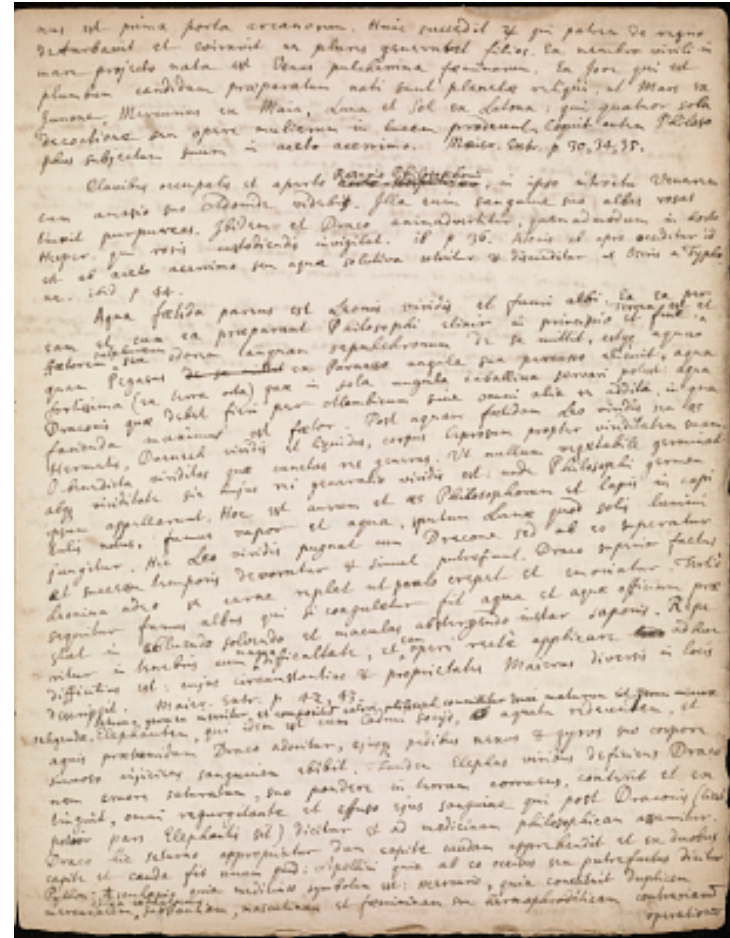 nus est prima porta arcanorum. Huic succedit ♃ qui patrem de regno
deturbavit et castravit ne plures generaret filios. Ex membro virili in
mare projecto nata est Venus pulcherrima fœminarum. Ex Jove qui est
plumbum candidum præparatum nati sunt planetæ reliqui, ut Mars ex
Junone, Mercurius ex Maia, Luna et Sol ex Latona: qui quatuor sola
decoctione seu opere mulierum in lucem prodeunt. Coquit autem Philoso
phus subjectum suum in aceto acerrimo. Maier. Embr. p 30, 34, 35.
Clavibus occupatis et aperto Rosario Philosophico, in ipso introitu Venerem
cum amasio suo Adonide videbis. Illa enim sanguine suo albas rosas
tinxit purpureas. Ibidem et Draco animadvertitur, quemadmodum in horto
Hesper. qui rosis custodiendis invigilat. ib p 36. Adonis ab apro occiditur id
est ab aceto acerrimo seu aqua solutiva solvitur & disciditur, ut Osiris a Typho
ne. ibid p 44.
Aqua fœtida parens est Leonis viridis et fumi albi. Ea ex per
eam et cum ea præparant Philosophi elixir in principio et fine
fœtorem seu odorem tanquam sepulchrorum de se mittit, estque aqua
quam Pegasus ex Parnasso ungula sua percusso elicuit, aqua
fortissima (ex terra orta) quæ in sola ungula caballina servari potest: aqua
Draconis quæ debet fieri per alembicum sine omni alia re addita, in qua
facienda maximus est fœtor. Post aquam fœtidam Leo viridis seu æs
Hermetis, viridis et liquidus, corpus leprosum propter viriditatem suam.
O benedicta viriditas quæ cunctas res generas. Ut nullum vegetabile germinat
absque viriditate sic hujus rei generatio viridis est: unde Philosophi germen
ipsum appellarunt. Hoc est aurum et æs Philosophorum et lapis in capi
tulis notus, fumus vapor et aqua, sputum Lunæ quod solis lumini
jungitur. Hic Leo viridis pugnat cum Dracone sed ab eo superatur
et successu temporis devoratur & simul putrefiunt. Draco superior factus
leonina adeo se carne replet ut paulo crepet et emoriatur. Tertio
sequitur fumus albus qui si coaguletur fit aqua et aquæ officium præ
stat in abluendo solvendo et maculas abstergendo instar saponis. Repe
ritur in tenebris cum magna difficultate, et eam operi recte applicare adhuc
difficilius est: cujus circumstantias & proprietates Maierus diversis in locis
descripsit. Maier. Embr. p. 42, 43.
seligendæ. Elephantem, qui idem est cum Cadmi socijs, aquatu redeuntem, et
aquis prætumidum Draco adoritur, ejusque pedibus nexus & gyros suo corpore
sinuoso injiciens sanguinem ebibit. Tandem Elephas viribus deficiens Draco
nem cruore saturatum, suo pondere in terram corruens, conterit et ex
tinguit, omni regurgitante et effuso ejus sanguine qui post Draconis (licet
potior pars Elephantis sit) dicitur et ad medicinam philosophicam assumitur.
Draco hic saturno appropriatur dum capite caudam apprehendit et ex duobus
capite et cauda fit unum: Apollini quia ab eo occisus seu putrefactus dicitur
Python: Æsculapio quia medicinæ symbolum est: mercurio, quia continet duplicem
mercurialem substantiam, masculinam et fœmininam seu hermaphroditicam contrariarum
operationum